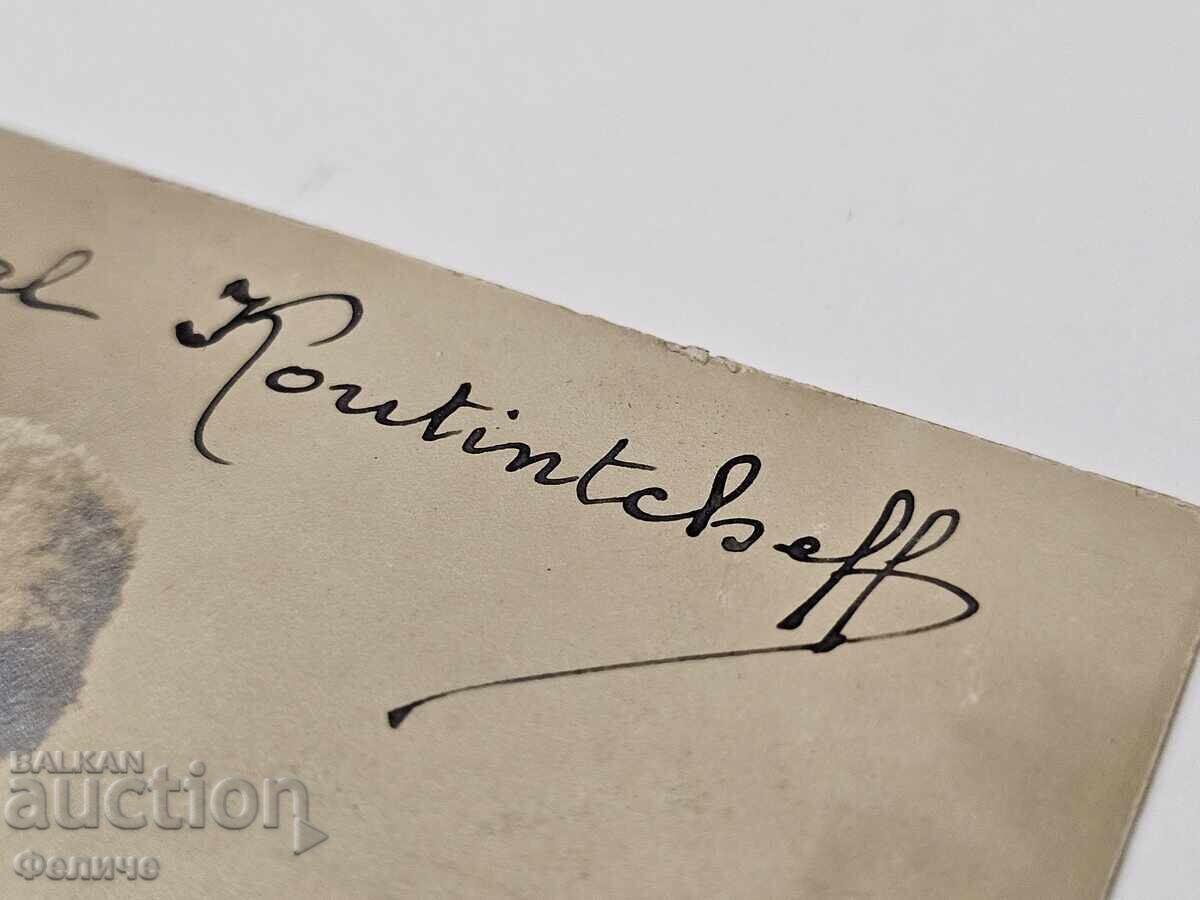 Koutintcheff
BALKAN
auction
Феличе